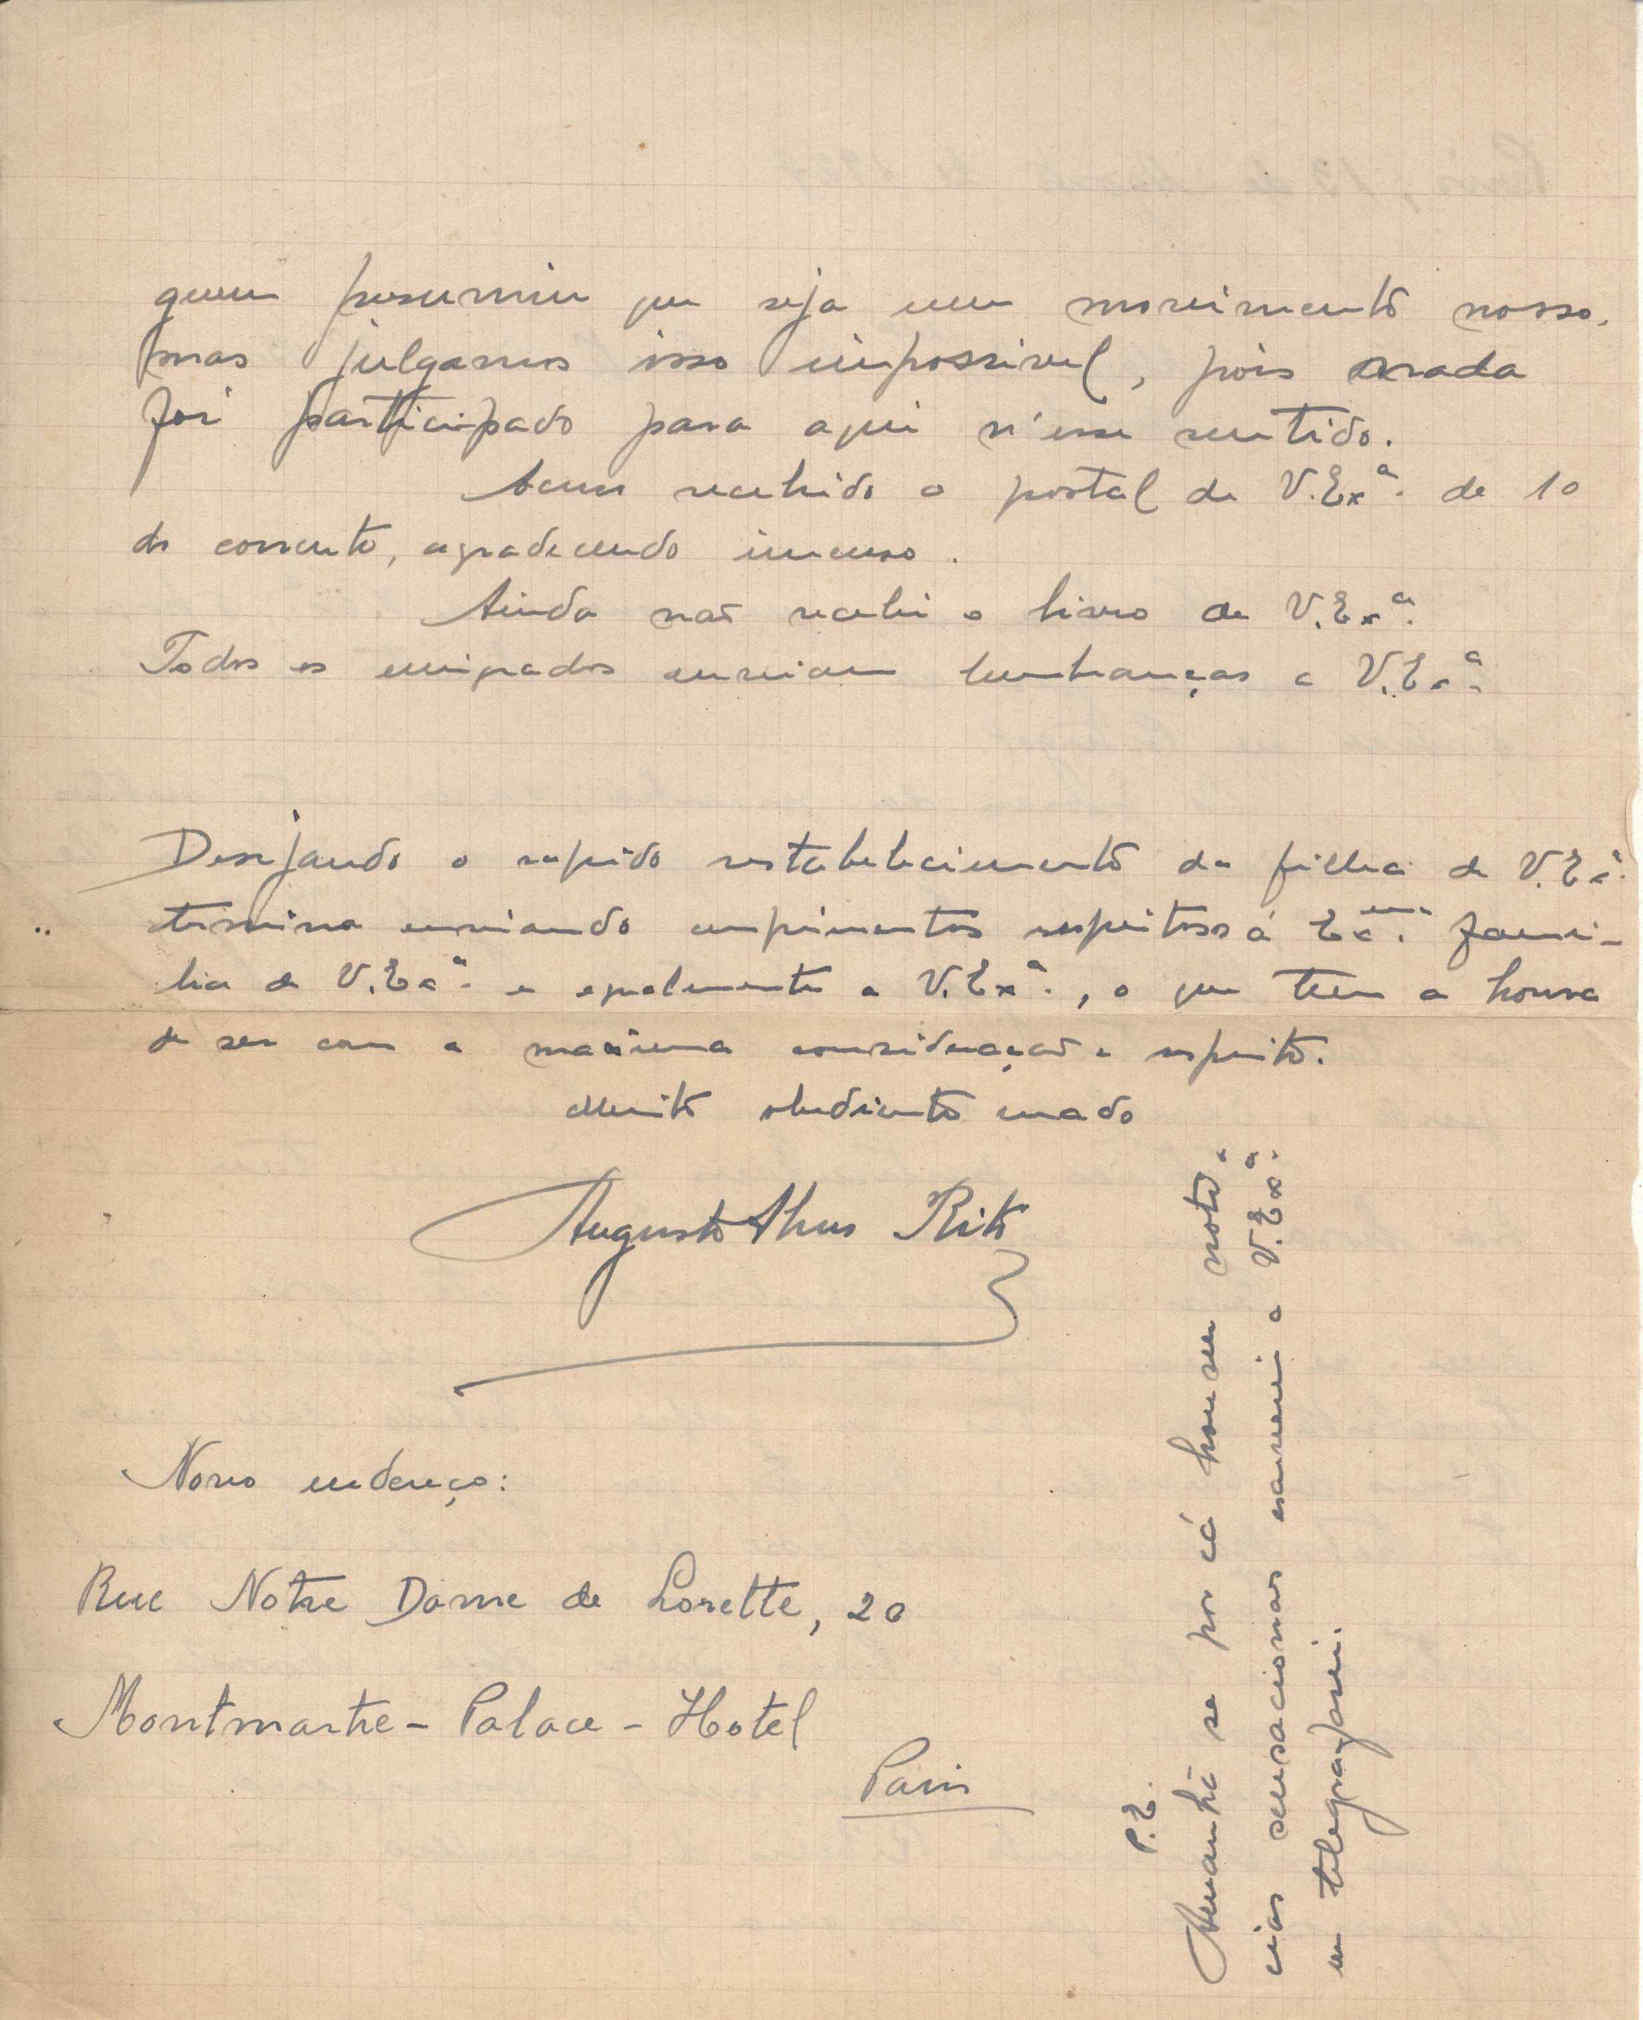 quem presumiu que seja um movimento nosso,
mas julgamos isso impossivel, pois nada
foi participado para aqui n'esse sentido.
Acuso recebido o postal de V. Exª. de 10
do corrente, agradecendo imenso.
Ainda não recebi o livro de V. Exª.
Todos os emigrados enviam lembranças a V. Exª.
Desejando o rapido restabelecimento da filha de V. Exª.
termina enviando cumprimentos respeitosos á Exma. fami-
lia de V. Exª. e egualmente a V. Exª., o que tem a honra
de ser com a maxima consideração e respeito.
Muito obediente creado
Augusto Alves
Novo endereço:
Rue Notre Dame de Lorette, 20
Montmartre - Palace - Hotel
Paris
P.E.
Amanhã se por cá houver noti-
cias sensacionaes escreverei a V. Exª.
ou telegrafarei.